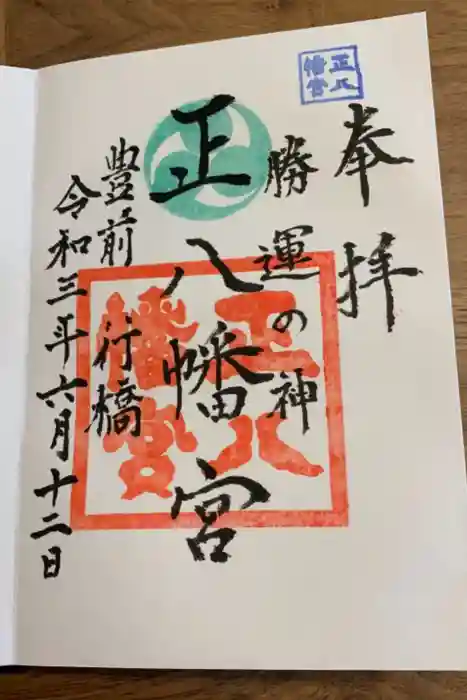 正八
幡宮
奉拝
勝運の神
正八幡宮
正八
幡宮
豊前 行橋
令和三年六月十二日